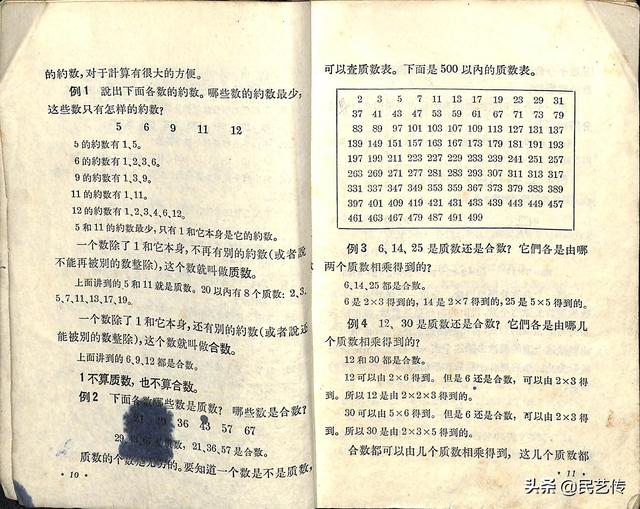 的約数，对于計算有很大的方便。
例1 說出下面各数的約数。哪些数的約数最少，
这些数只有怎样的約数？
5 6 9 11 12
5的約数有1、5。
6的約数有1、2、3、6。
9的約数有1、3、9。
11的約数有1、11。
12的約数有1、2、3、4、6、12。
5和11的約数最少，只有1和它本身是它的約数。
一个数除了1和它本身，不再有別的約数（或者說
不能再被別的数整除），这个数就叫做质数。
上面讲到的5和11就是质数。20以内有8个质数：2、3、
5、7、11、13、17、19。
一个数除了1和它本身，还有別的約数（或者說还
能被別的数整除），这个数就叫做合数。
上面讲到的6、9、12都是合数。
1不算质数，也不算合数。
例2 下面各数哪些数是质数？哪些数是合数？
36 43 57 67
29、 数，21、36、57是合数。
质数的个数是无穷的。要知道一个数是不是质数，
· 10 ·
可以查质数表。下面是500以内的质数表。
2 3 5 7 11 13 17 19 23 29 31
37 41 43 47 53 59 61 67 71 73 79
83 89 97 101 103 107 109 113 127 131 137
139 149 151 157 163 167 173 179 181 191 193
197 199 211 223 227 229 233 239 241 251 257
263 269 271 277 281 283 293 307 311 313 317
331 337 347 349 353 359 367 373 379 383 389
397 401 409 419 421 431 433 439 443 449 457
461 463 467 479 487 491 499
例3 6、14、25是质数还是合数？它們各是由哪
两个质数相乘得到的？
6、14、25都是合数。
6是2×3得到的，14是2×7得到的，25是5×5得到的。
例4 12、30是质数还是合数？它們各是由哪几
个质数相乘得到的？
12和30都是合数。
12可以由2×6得到。但是6还是合数，可以由2×3得
到。所以12是由2×2×3得到的。
30可以由5×6得到。但是6还是合数，可以由2×3得
到。所以30是由2×3×5得到的。
合数都可以由几个质数相乘得到，这几个质数都
· 11 ·
头条 @民艺传